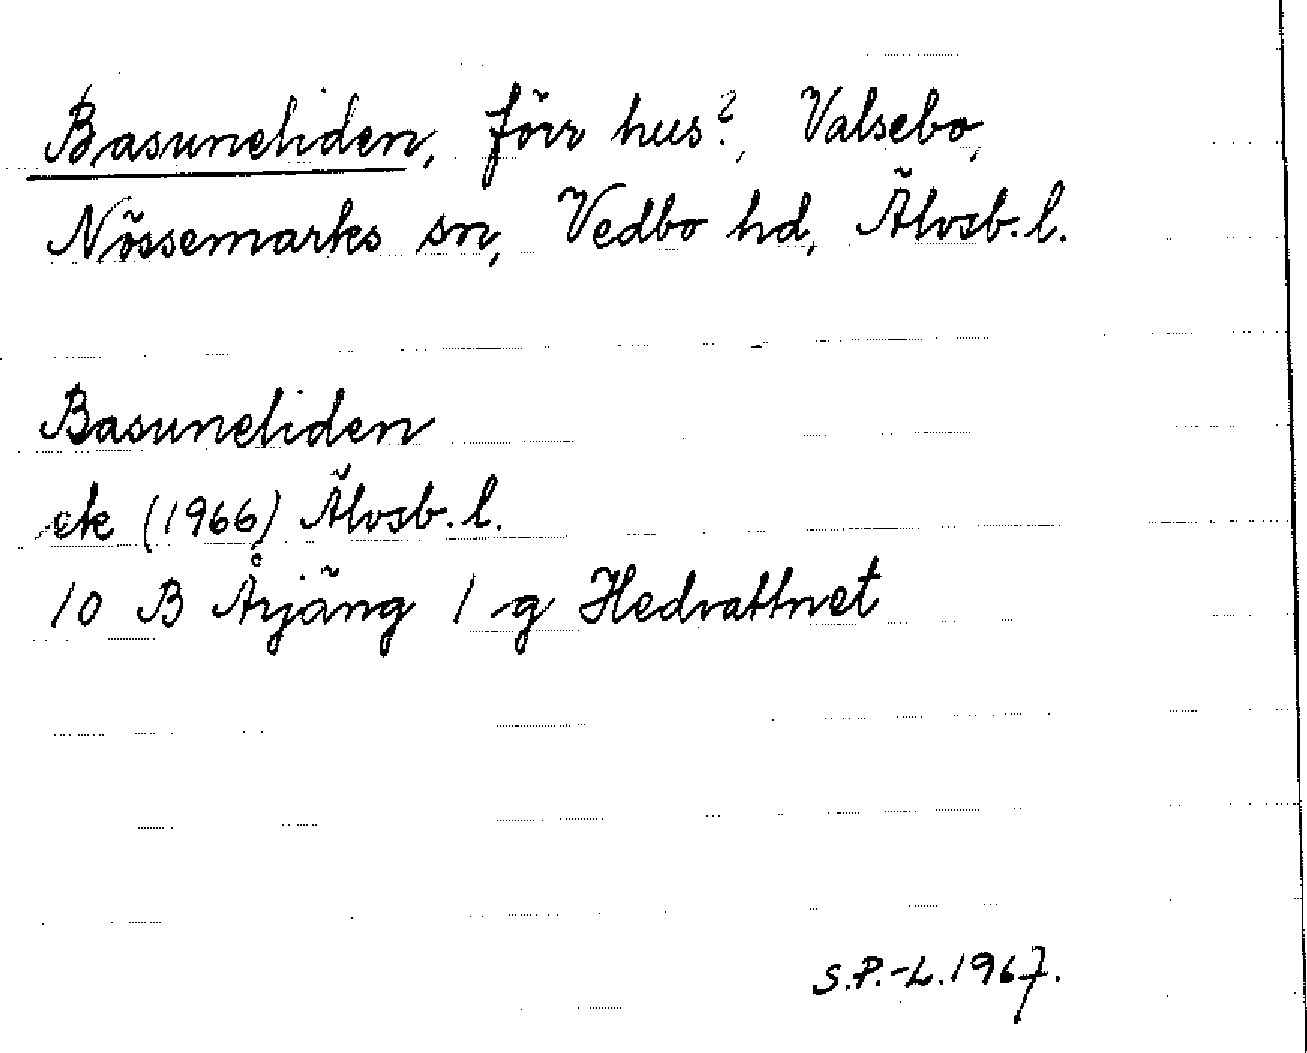 Basuneliden, förr hus?, Valsebo,
Nössemarks sn, Vedbo hd, Älvsb. l.
Basuneliden
ek (1966) Älvsb. l.
10 B Årjäng 1 g Hedvattnet
S.P.-L. 1967.